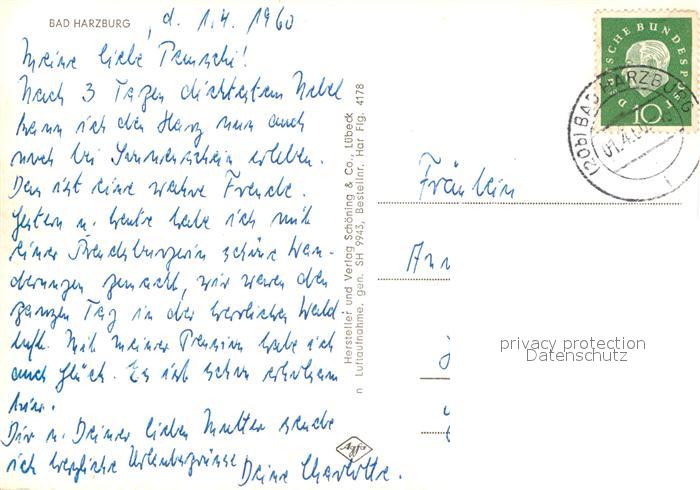 BAD HARZBURG
, d. 1.4. 1960
Meine liebe
Nach 3 Tagen dichtestem Nebel
kann ich den Harz nun auch
noch bei Sonnenschein erleben.
Das ist eine wahre Freude.
Gestern u. heute habe ich mit
einer schöne Wan-
derungen gemacht, wir waren den
ganzen Tag in der herrlichen Wald-
luft. Mit meiner Pension habe ich
auch Glück. Es ist schon erholsam
hier.
Dir u. Deiner lieben Mutter sende
ich herzliche Urlaubsgrüsse
Deine Charlotte.
Hersteller und Verlag Schöning & Co., Lübeck
Luftaufnahme, gen. SH 9943, Bestellnr. Har Flg. 4178
Agfa
DEUTSCHE BUNDESPOST
10
(20b) BAD HARZBURG
01.4.60
Fräulein
Ann
privacy protection
Datenschutz